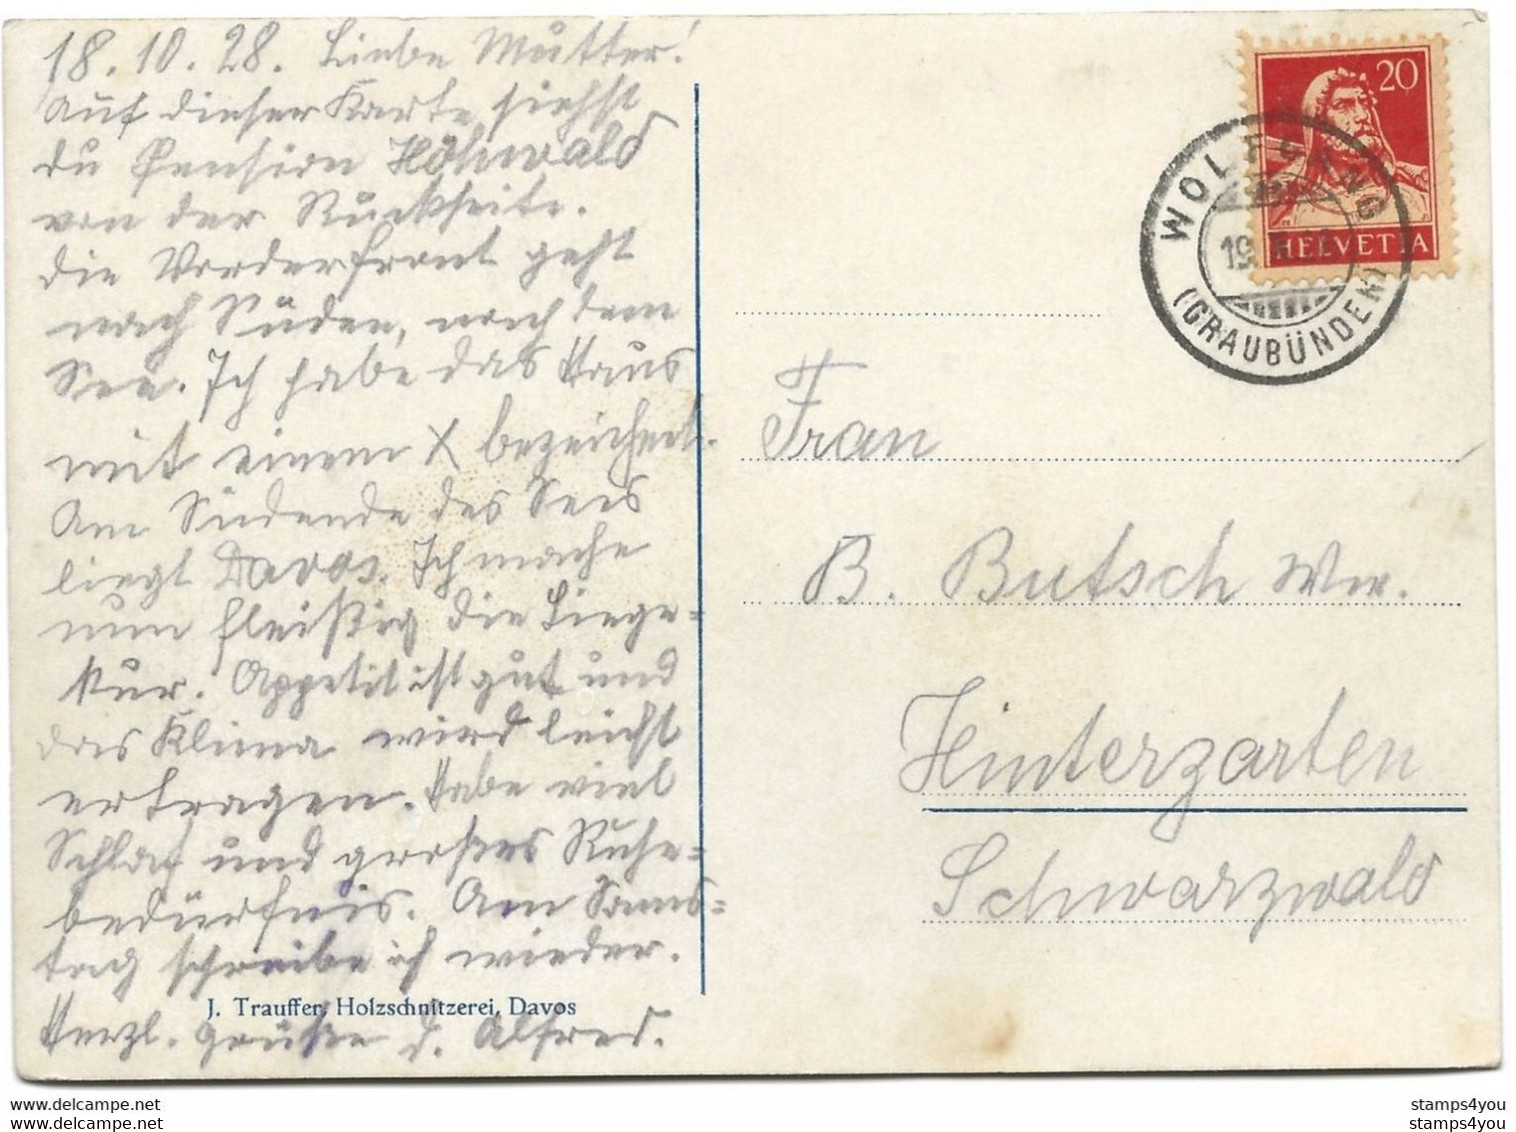 18.10.28. Liebe Mutter!
Auf dieser Karte siehst
du Pension Höhwald
von der Rückseite.
Die Vorderfront geht
nach Süden, nach dem
See. Ich habe das Haus
mit einem X bezeichnet.
Am Südende des Sees
liegt Davos. Ich mache
nun fleißig die Liege=
kur. Appetit ist gut und
das Klima wird leicht
ertragen. Habe viel
Schlaf und großes Ruhe=
bedürfnis. Am Sonns=
tag schreibe ich wieder.
J. Trauffer, Holzschnitzerei, Davos
Herzl. Grüße d. Alfred.
20
HELVETIA
WOLFGANG
(GRAUBÜNDEN)
Frau
B. Butsch Ww.
Hinterzarten
Schwarzwald
stamps4you
stamps4you
delcampe.net
delcampe.net